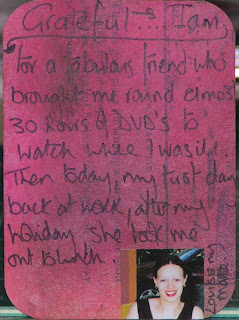 Grateful .... I am
for a fabulous friend who
brought me round almost
30 hours of DVD's to
watch while I was ill.
Then today, my first day
back at work, after my
holiday she took me
out to lunch